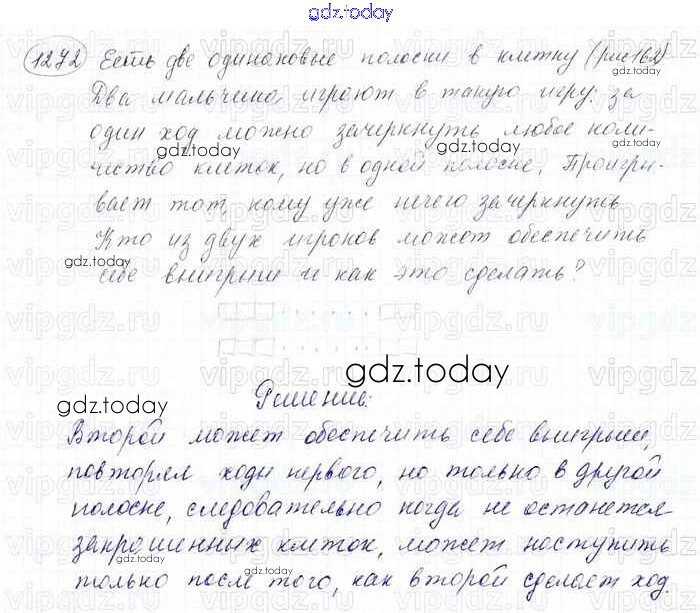 gdz.today
1272 Есть две одинаковые полоски в клетку (рис 162)
gdz.today
Два мальчика играют в такую игру: за
gdz.today
один ход можно зачеркнуть любое коли-
gdz.today gdz.today
чество клеток, но в одной полоске. Проигры-
вает тот, кому уже нечего зачеркнуть
gdz.today
Кто из двух игроков может обеспечить
gdz.today
себе выигрыш и как это сделать?
gdz.today
Решение:
gdz.today
Второй может обеспечить себе выигрыш,
повторяя ходы первого, но только в другой
полоске, следовательно когда не останется
закрашенных клеток, может наступить
gdz.today
только после того, как второй сделает ход.